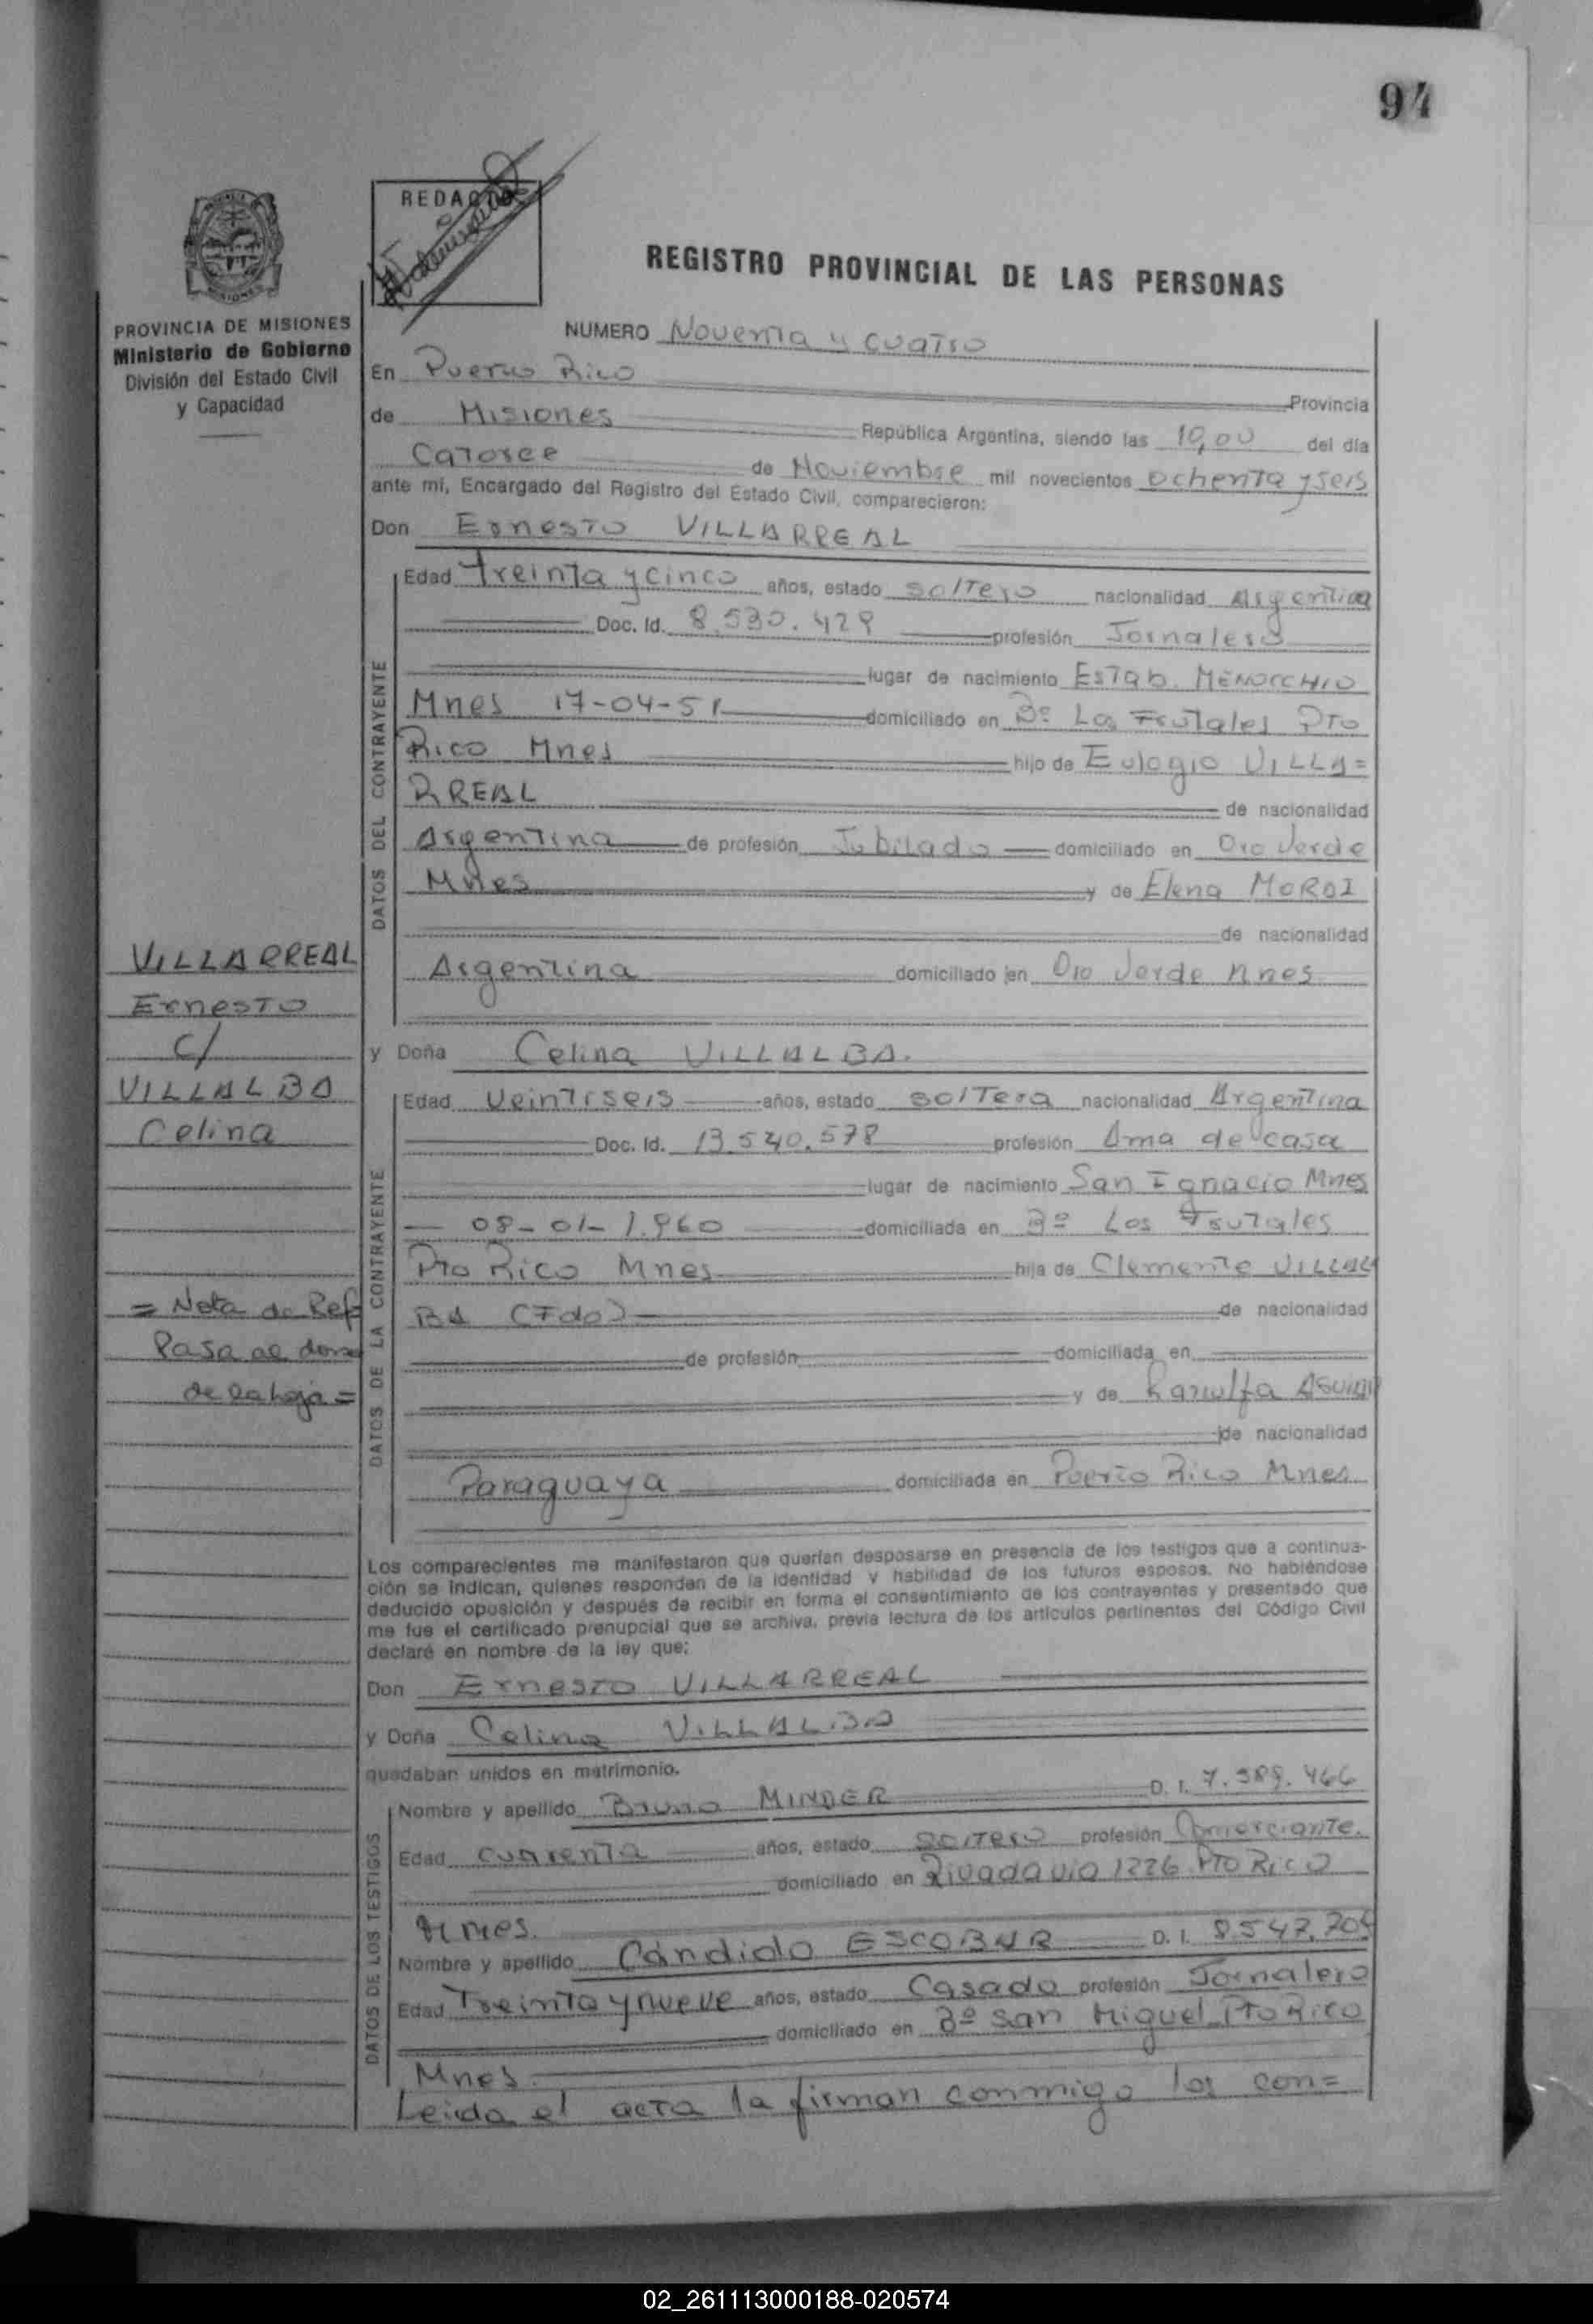 94
REDACTO
REGISTRO PROVINCIAL DE LAS PERSONAS
PROVINCIA DE MISIONES
Ministerio de Gobierno
División del Estado Civil
y Capacidad
NUMERO Noventa y cuatro
En Puerto Rico
Provincia
de Misiones República Argentina, siendo las 10,00 del día
Catorce de Noviembre mil novecientos ochenta y seis
ante mí, Encargado del Registro del Estado Civil, comparecieron:
Don Ernesto VILLARREAL
DATOS DEL CONTRAYENTE
Edad treinta y cinco años, estado soltero nacionalidad Argentina
Doc. Id. 8.530.429 profesión Jornalero
lugar de nacimiento Estab. MENOCCHIO
Mnes 17-04-51 domiciliado en Bº Los Frutales Pto
Rico Mnes hijo de Eulogio VILLA=
RREAL de nacionalidad
Argentina de profesión Jubilado domiciliado en Oro Verde
Mnes y de Elena
de nacionalidad
Argentina domiciliado en Oro Verde Mnes
VILLARREAL
Ernesto
C/
VILLALBA
Celina
y Doña Celina VILLALBA.
DATOS DE LA CONTRAYENTE
Edad Veintiseis años, estado soltera nacionalidad Argentina
Doc. Id. 13.540.578 profesión Ama de casa
lugar de nacimiento San Ignacio Mnes
08-01-1.960 domiciliada en Bº Los Frutales
Pto Rico Mnes hija de Clemente VILLAL
BA (Fdo) de nacionalidad
de profesión domiciliada en
y de
de nacionalidad
Paraguaya domiciliada en Puerto Rico Mnes
= Nota de Ref
Pasa al dorso
de la hoja =
Los comparecientes me manifestaron que querían desposarse en presencia de los testigos que a continua-
ción se indican, quienes responden de la identidad y habilidad de los futuros esposos. No habiéndose
deducido oposición y después de recibir en forma el consentimiento de los contrayentes y presentado que
me fue el certificado prenupcial que se archiva, previa lectura de los artículos pertinentes del Código Civil
declaré en nombre de la ley que:
Don Ernesto VILLARREAL
y Doña Celina VILLALBA
quedaban unidos en matrimonio.
DATOS DE LOS TESTIGOS
Nombre y apellido Bruno MINDER D. I. 7.589.466
Edad cuarenta años, estado soltero profesión Comerciante.
domiciliado en Rivadavia 1226 Pto Rico
Mnes.
Nombre y apellido Cándido ESCOBAR D. I. 8.547.704
Edad Treinta y nueve años, estado Casado profesión Jornalero
domiciliado en Bº San Miguel Pto Rico
Mnes
Leida el acta la firman conmigo los con=
02_261113000188-020574